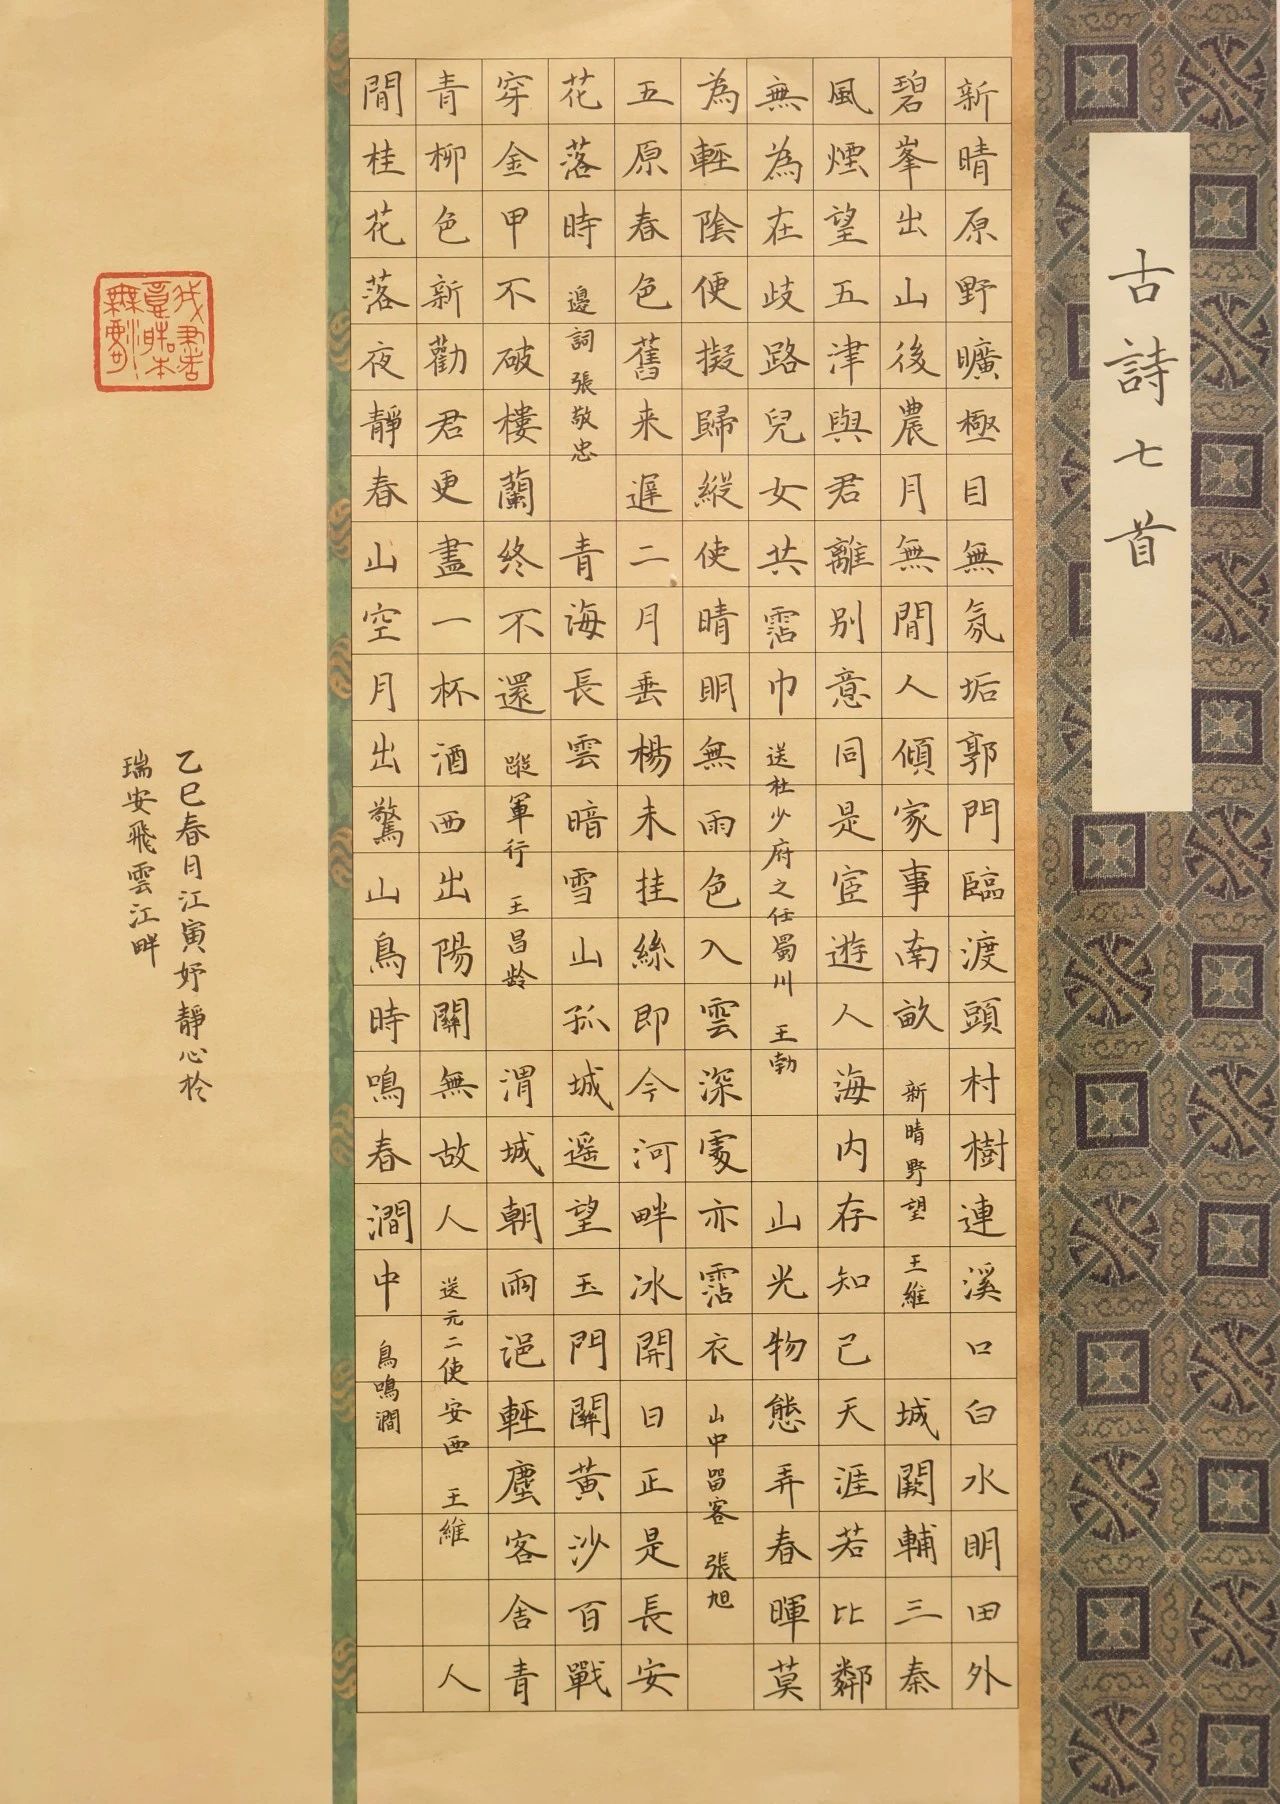 古詩七首
新晴原野曠極目無氛垢郭門臨渡頭村樹連溪口白水明田外
碧峯出山後農月無閒人傾家事南畝 新晴野望 王維 城闕輔三秦
風煙望五津與君離別意同是宦遊人海內存知己天涯若比鄰
無為在歧路兒女共霑巾 送杜少府之任蜀川 王勃 山光物態弄春暉莫
為輕陰便擬歸縱使晴明無雨色入雲深處亦霑衣 山中留客 張旭
五原春色舊来遲二月垂楊未挂絲即今河畔冰開日正是長安
花落時 邊詞 張敬忠 青海長雲暗雪山孤城遥望玉門關黃沙百戰
穿金甲不破樓蘭終不還 從軍行 王昌齡 渭城朝雨浥輕塵客舍青
青柳色新勸君更盡一杯酒西出陽關無故人 送元二使安西 王維 人
閒桂花落夜靜春山空月出驚山鳥時鳴春澗中 鳥鳴澗
乙巳春日江寅妤靜心於
瑞安飛雲江畔